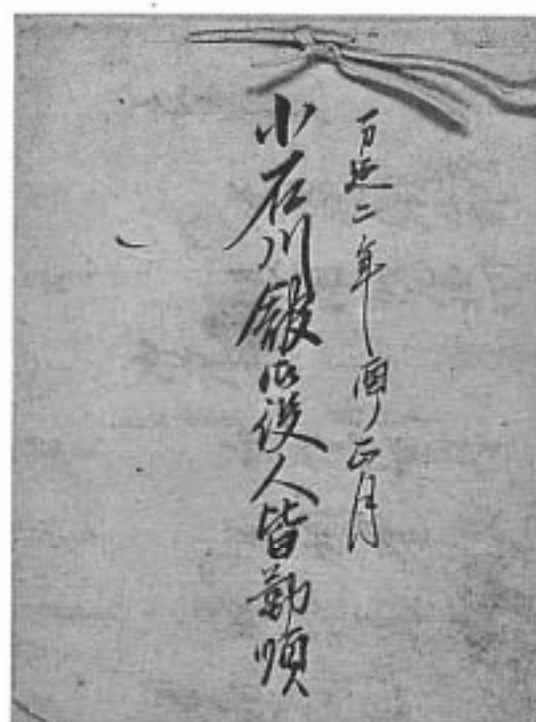 万延二年酉ノ正月
小石川館御役人皆勤順